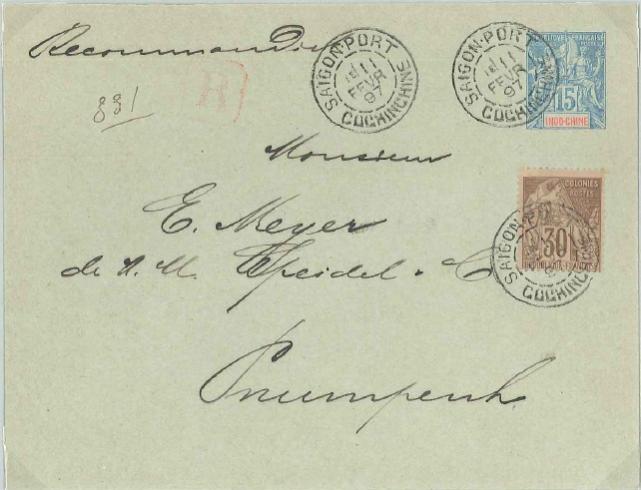 Recommandée
SAIGON-PORT
11
FEVR
97
COCHINCHINE
SAIGON-PORT
11
FEVR
97
COCHINCHINE
POSTES
15
INDO-CHINE
R
831
Monsieur
E. Meyer
de M. M. Speidel & C
COLONIES
POSTES
30
SAIGON-PORT
COCHINCHINE
Pnumpenh